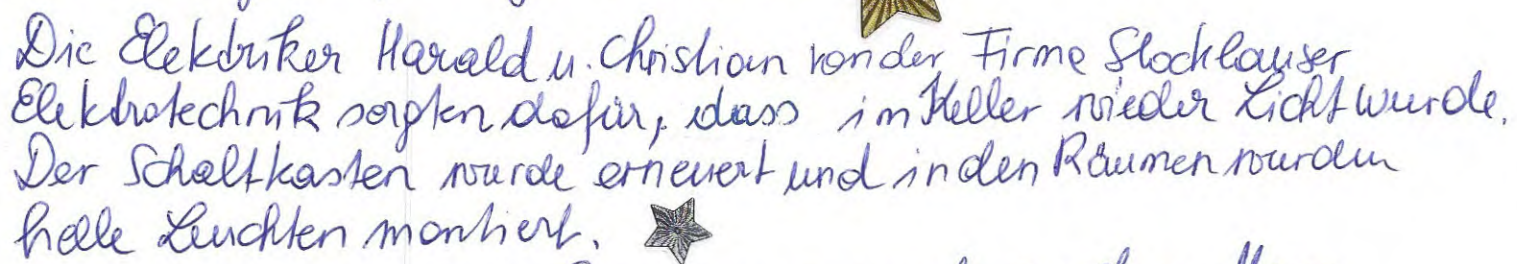 Die Elektriker Harald u. Christian von der Firma Stockhauser
Elektrotechnik sorgten dafür, dass im Keller wieder Licht wurde.
Der Schaltkasten wurde erneuert und in den Räumen wurden
helle Leuchten montiert.